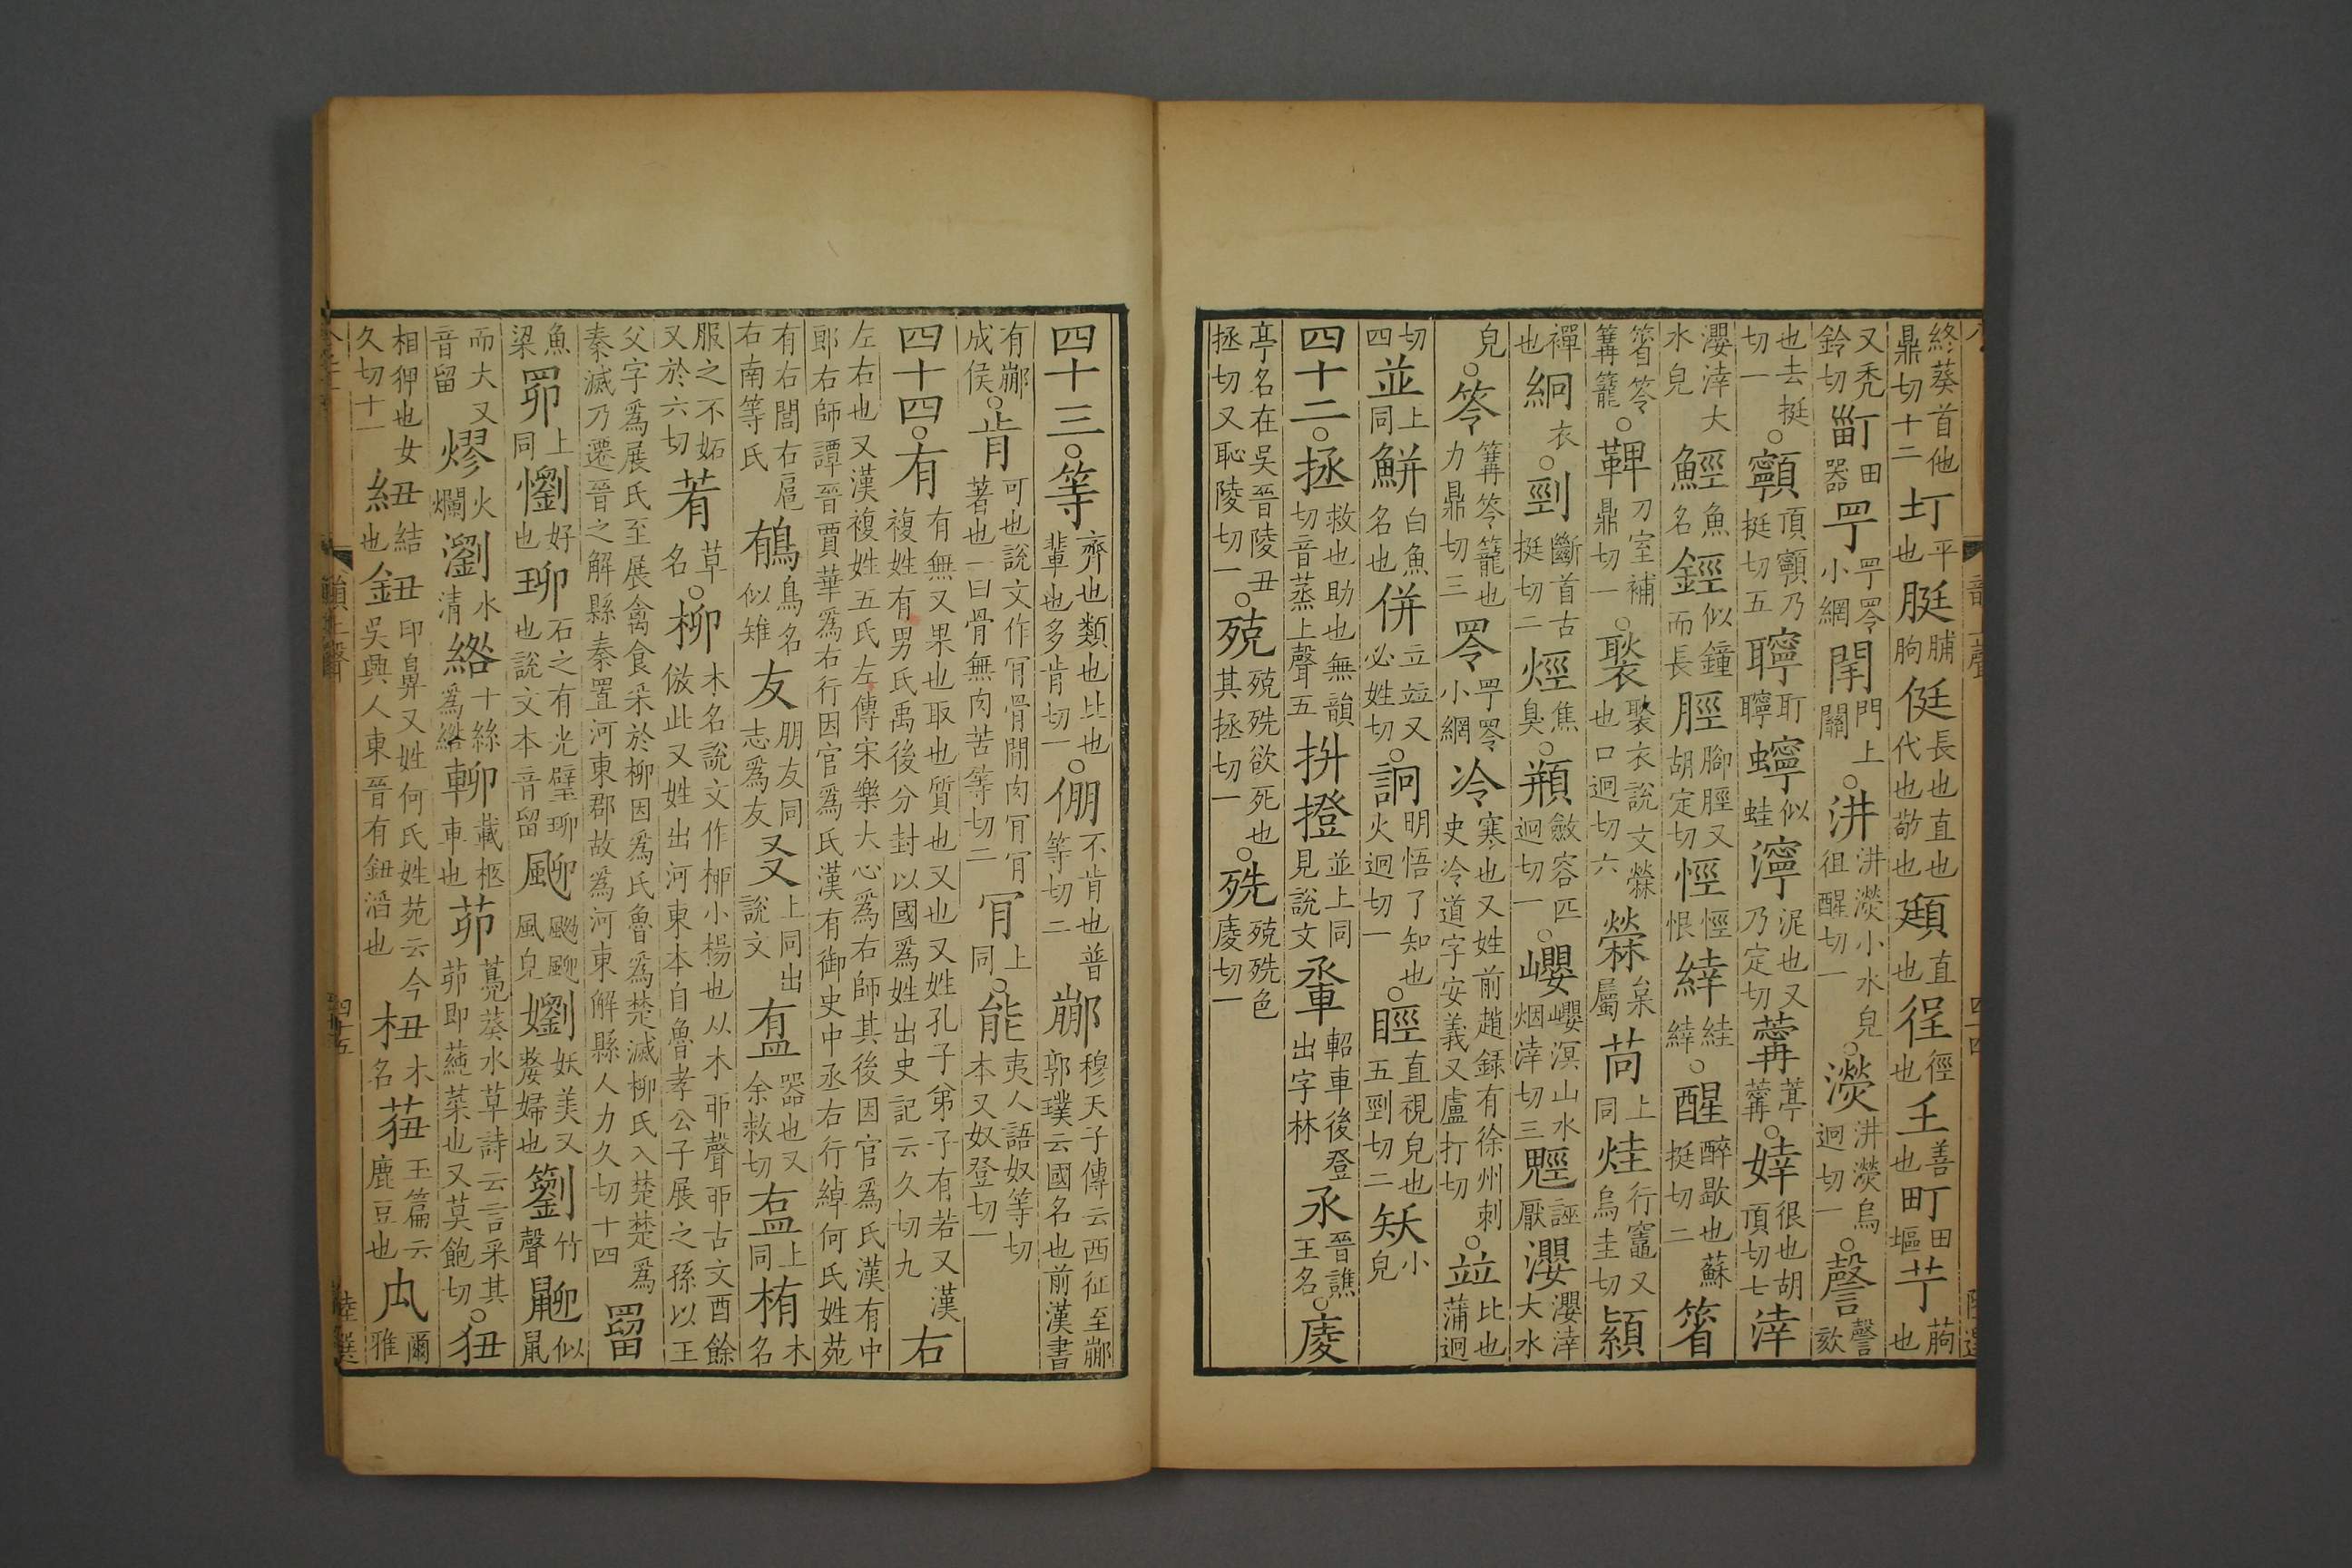 終葵首他鼎切十二圢平也脡脯朐侹長也直也代也敬也頲直也徎徑也𡈼善也町田塸艼葋也
又禿鈴切𤱿田器𦉪𦉪䍅小網閛門上關○汫汫濙小水皃徂醒切一○濙汫濙烏迥切一○謦謦欬
也去挺切一○顐頂顐乃挺切五聹耵聹𧓕似蛙濘泥也又乃定切薴葶薴○婞很也胡頂切七涬
瀴涬大水皃鯹魚名鋞似鐘而長脛腳脛又胡定切悻悻恨緈絓緈○醒醉歇也蘇挺切二箵
箵笭篝籠○鞞刀室補鼎切一○褧褧衣說文檾也口迥切六檾枲屬苘上同烓行竈又烏圭切熲
襌也絅衣○剄斷首古挺切二烴焦臭○頩斂容匹迥切一○巊巊溟山水烟涬切三䫆誣厭瀴瀴涬大水
皃○笭篝笭籠也力鼎切三䍅𦉪䍅小網冷寒也又姓前趙錄有徐州刺史冷道字安義又盧打切○竝比也蒲迥
切四並上同鮩白魚名也併立竝又必姓切○詗明悟了知也火迥切一○脛直視皃也五剄切二𥏌小皃
四十二○拯救也助也無韻切音蒸上聲五抍撜並上同見說文𨋬軺車後登出字林氶晉譙王名○庱
亭名在吳晉陵丑拯切又恥陵切一○殑殑殑欲死也其拯切一○殑殑殑色庱切一
四十三○等齊也類也比也輩也多肯切一○倗不肯也普等切二䣙穆天子傳云西征至䣙郭璞云國名也前漢書
有䣙成侯○肯可也說文作肎骨閒肉肎肎著也一曰骨無肉苦等切二肎上同○能夷人語奴等切本又奴登切一
四十四○有有無又果也取也質也又也又姓孔子弟子有若又漢複姓有男氏禹後分封以國爲姓出史記云久切九右
左右也又漢複姓五氏左傳宋樂大心爲右師其後因官爲氏漢有中郎右師譚晉賈華爲右行因官爲氏漢有御史中丞右行綽何氏姓苑
有右閭右扈右南等氏䳑鳥名似雉友朋友同志爲友㕛上同出說文𥁓器也又余救切𥁓上同栯木名
服之不妬又於六切䓔草名○柳木名說文作桺小楊也从木丣聲丣古文酉餘倣此又姓出河東本自魯孝公子展之孫以王
父字爲展氏至展禽食采於柳因爲氏魯爲楚滅柳氏入楚楚爲秦滅乃遷晉之解縣秦置河東郡故爲河東解縣人力久切十四罶
魚梁罶上同懰好也珋石之有光璧珋也說文本音留䬟飈䬟風皃嬼妖美又嫠婦也籀竹聲鼦似鼠
而大又音留熮火爛瀏水清綹十絲爲綹𨋖載柩車也茆鳧葵水草詩云言采其茆即蒓菜也又莫飽切○狃
相狎也女久切十一紐結也鈕印鼻又姓何氏姓苑云今吳興人東晉有鈕滔也杻木名莥玉篇云鹿豆也厹爾雅